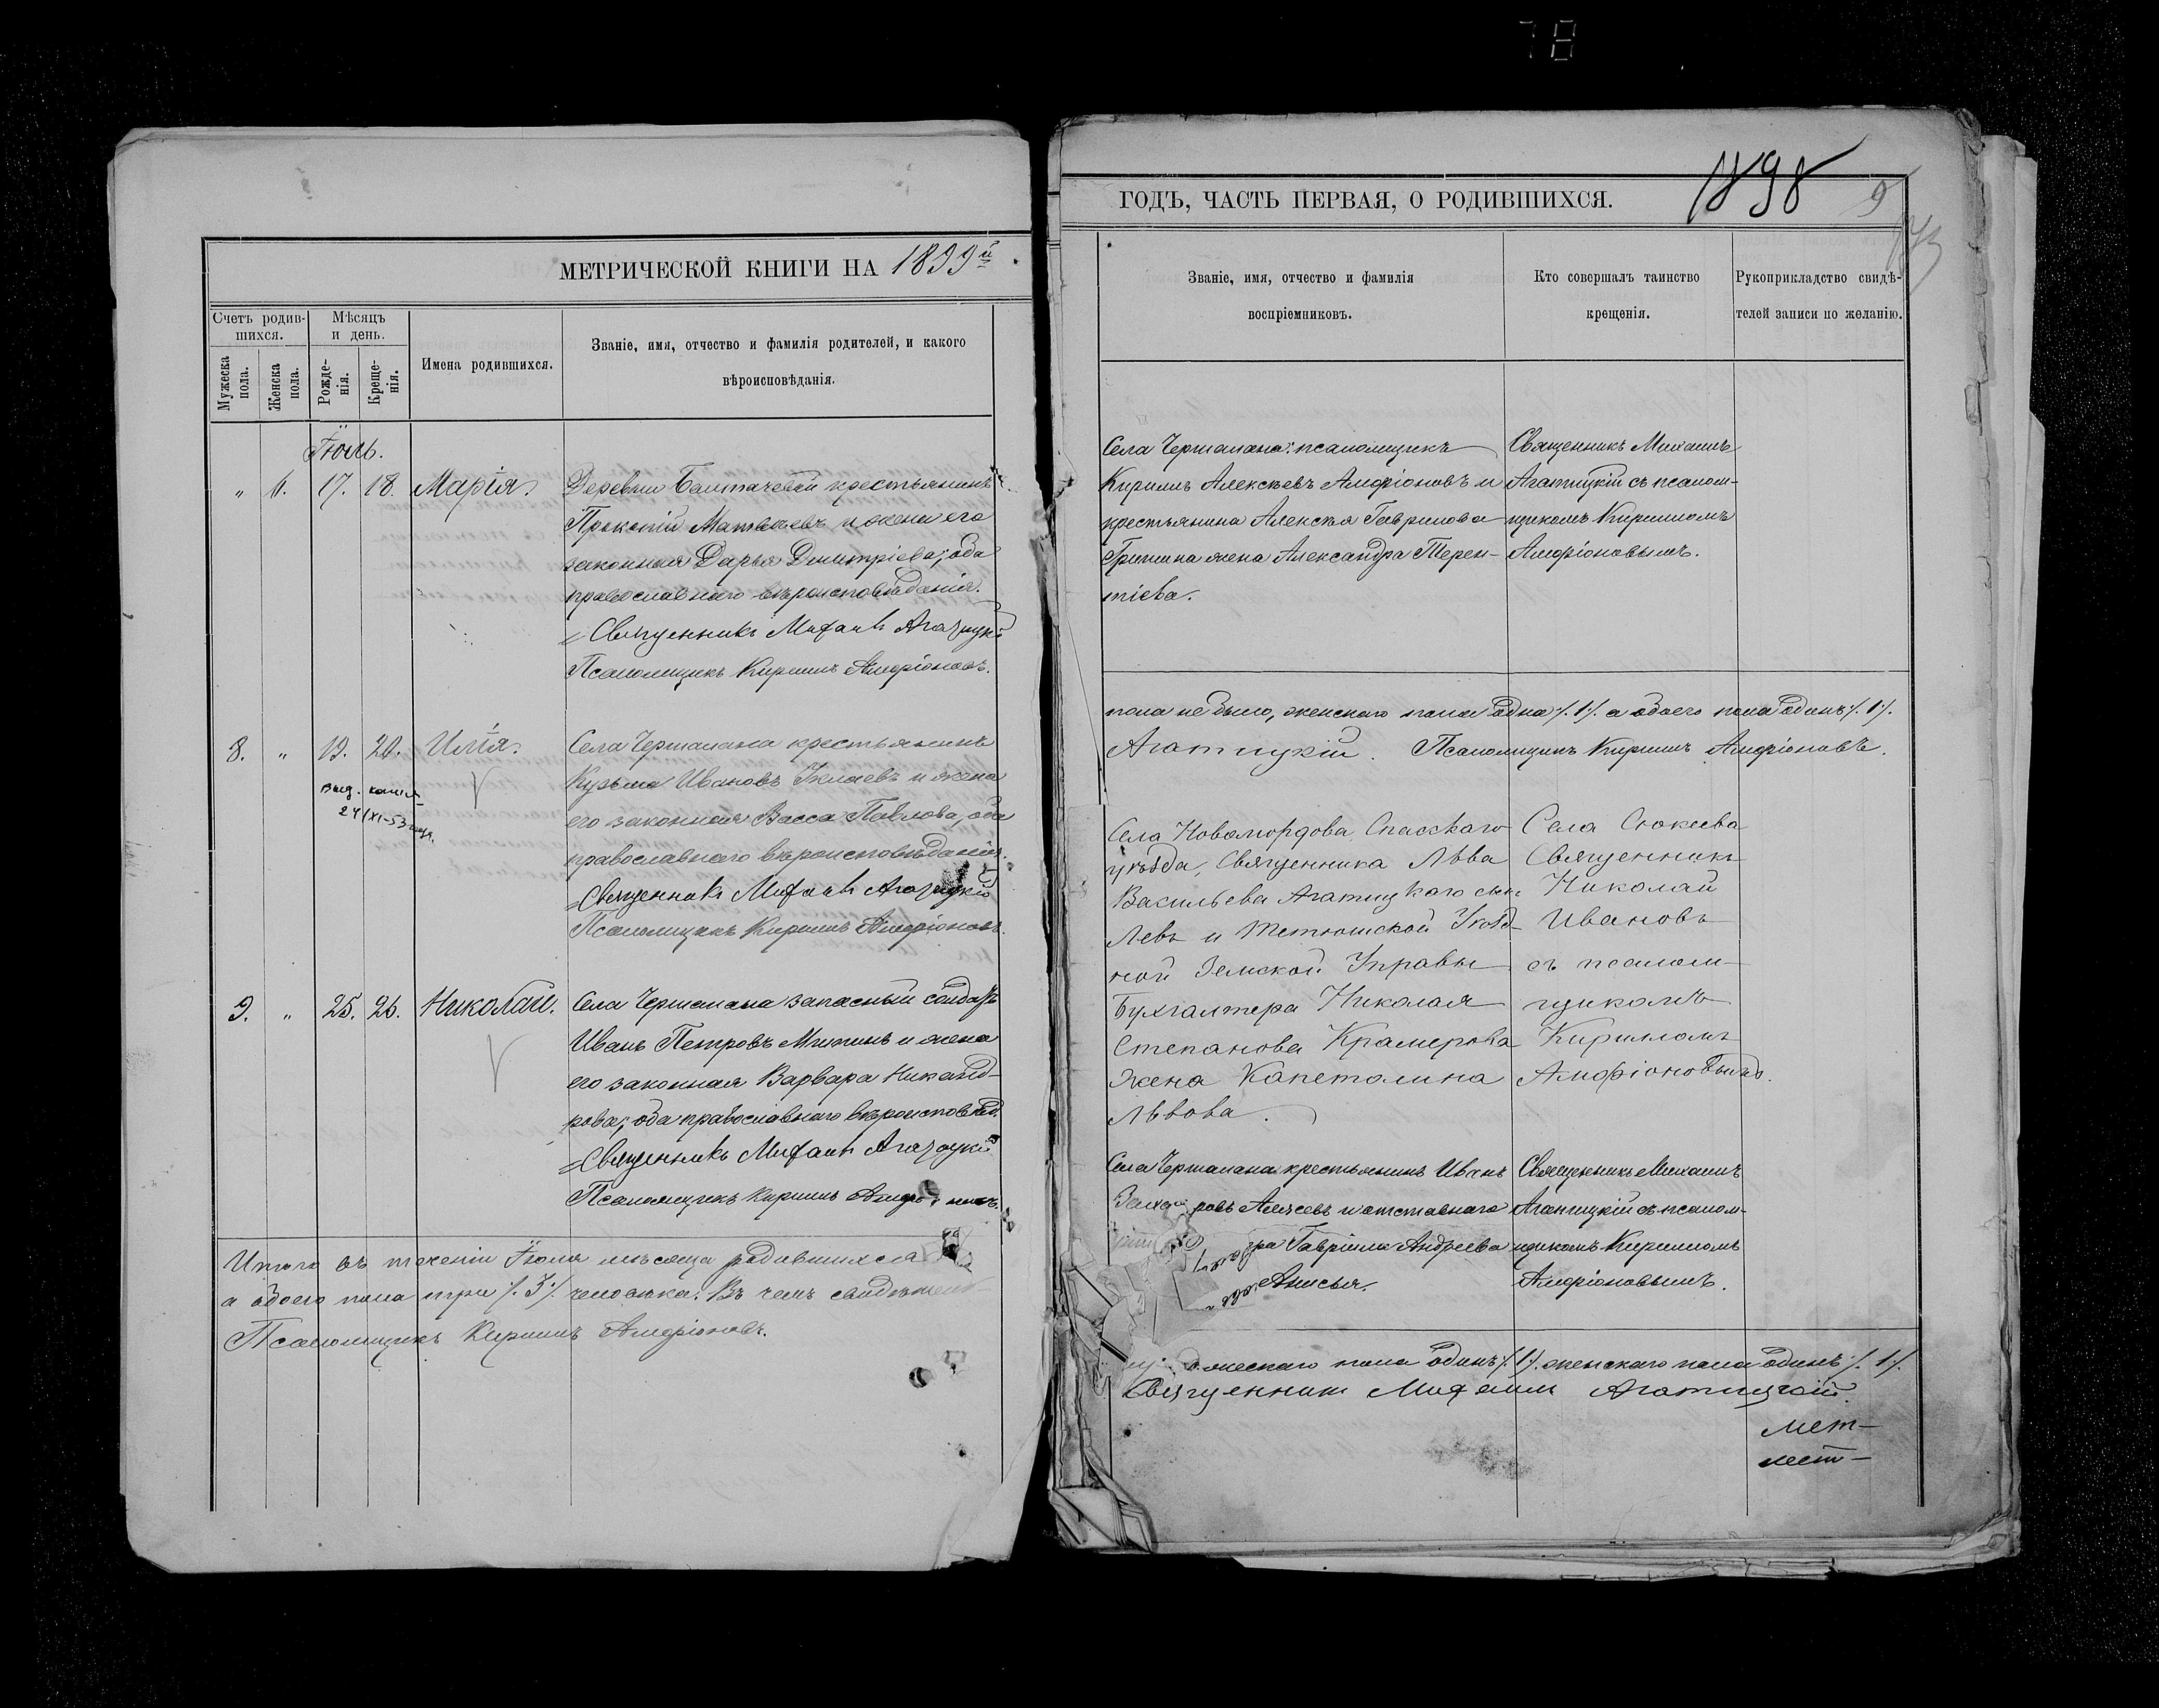 78
МЕТРИЧЕСКОЙ КНИГИ НА 1899й
Счетъ родив-
шихся.
Мѣсяцъ
и день.
Мужеска
пола.
Женска
пола.
Рожде-
нія.
Креще-
нія.
Имена родившихся.
Званіе, имя, отчество и фамилія родителей, и какого
вѣроисповѣданія.
Іюль.
„ 6. 17. 18. Марія. Деревни Балтачевой крестьянинъ
Прокопій Матвѣевъ и жена его
законная Дарья Дмитріева; оба
православнаго вѣроисповѣданія.
Священникъ Михаилъ Агатицкій
Псаломщикъ Кириллъ Амфіоновъ.
8. „ 19. 20. Илія. Села Чертыкова крестьянинъ
Кузьма Ивановъ и жена
его законная Васса Павлова, оба
православнаго вѣроисповѣданія.
Выд. копія
24/XI-53 года.
Священникъ Михаилъ Агатицкій
Псаломщикъ Кириллъ Амфіоновъ.
9. „ 25. 26. Николай. Села запасный солдатъ
Иванъ Петровъ Митинъ и жена
его законная Варвара Никанд-
рова; оба православнаго вѣроисповѣд.
Священникъ Михаилъ Агатицкій
Псаломщикъ Кириллъ
Итого въ теченіи Іюля мѣсяца родившихся
а обоего пола три /.3./ человѣка. Въ чемъ
Псаломщикъ Кириллъ Амфіоновъ.
1898
9
ГОДЪ, ЧАСТЬ ПЕРВАЯ, О РОДИВШИХСЯ.
Званіе, имя, отчество и фамилія
воспріемниковъ.
Кто совершалъ таинство
крещенія.
Рукоприкладство свидѣ-
телей записи по желанію.
Села псаломщикъ
Кириллъ Алексѣевъ Амфіоновъ и
крестьянина Алексѣя Гаврилова
Гришина жена Александра Терен-
тіева.
Священникъ Михаилъ
Агатицкій съ псалом-
щикомъ Кирилломъ
Амфіоновымъ.
пола не было, женскаго пола одна /.1./. а обоего пола одинъ /.1./.
Агатицкій. Псаломщикъ Кириллъ Амфіоновъ.
Села Новомордова Спасскаго
уѣзда, Священника Льва
Васильева Агатицкаго сынъ
Левъ и Тетюшской Уѣзд-
ной Земской Управы
Бухгалтера Николая
Степанова Крамерова
жена Капетолина
Львова.
Села Сюкеева
Священникъ
Николай
Ивановъ
съ псалом-
щикомъ
Кирилломъ
Амфіоновымъ.
Села крестьянинъ Иванъ
ровъ и отставнаго
Гавріила Андреева
Анисья.
Священникъ Михаилъ
Агатицкій съ псалом-
щикомъ Кирилломъ
Амфіоновымъ.
мужескаго пола одинъ /.1./. женскаго пола одинъ /.1./.
Священникъ Михаилъ Агатицкій